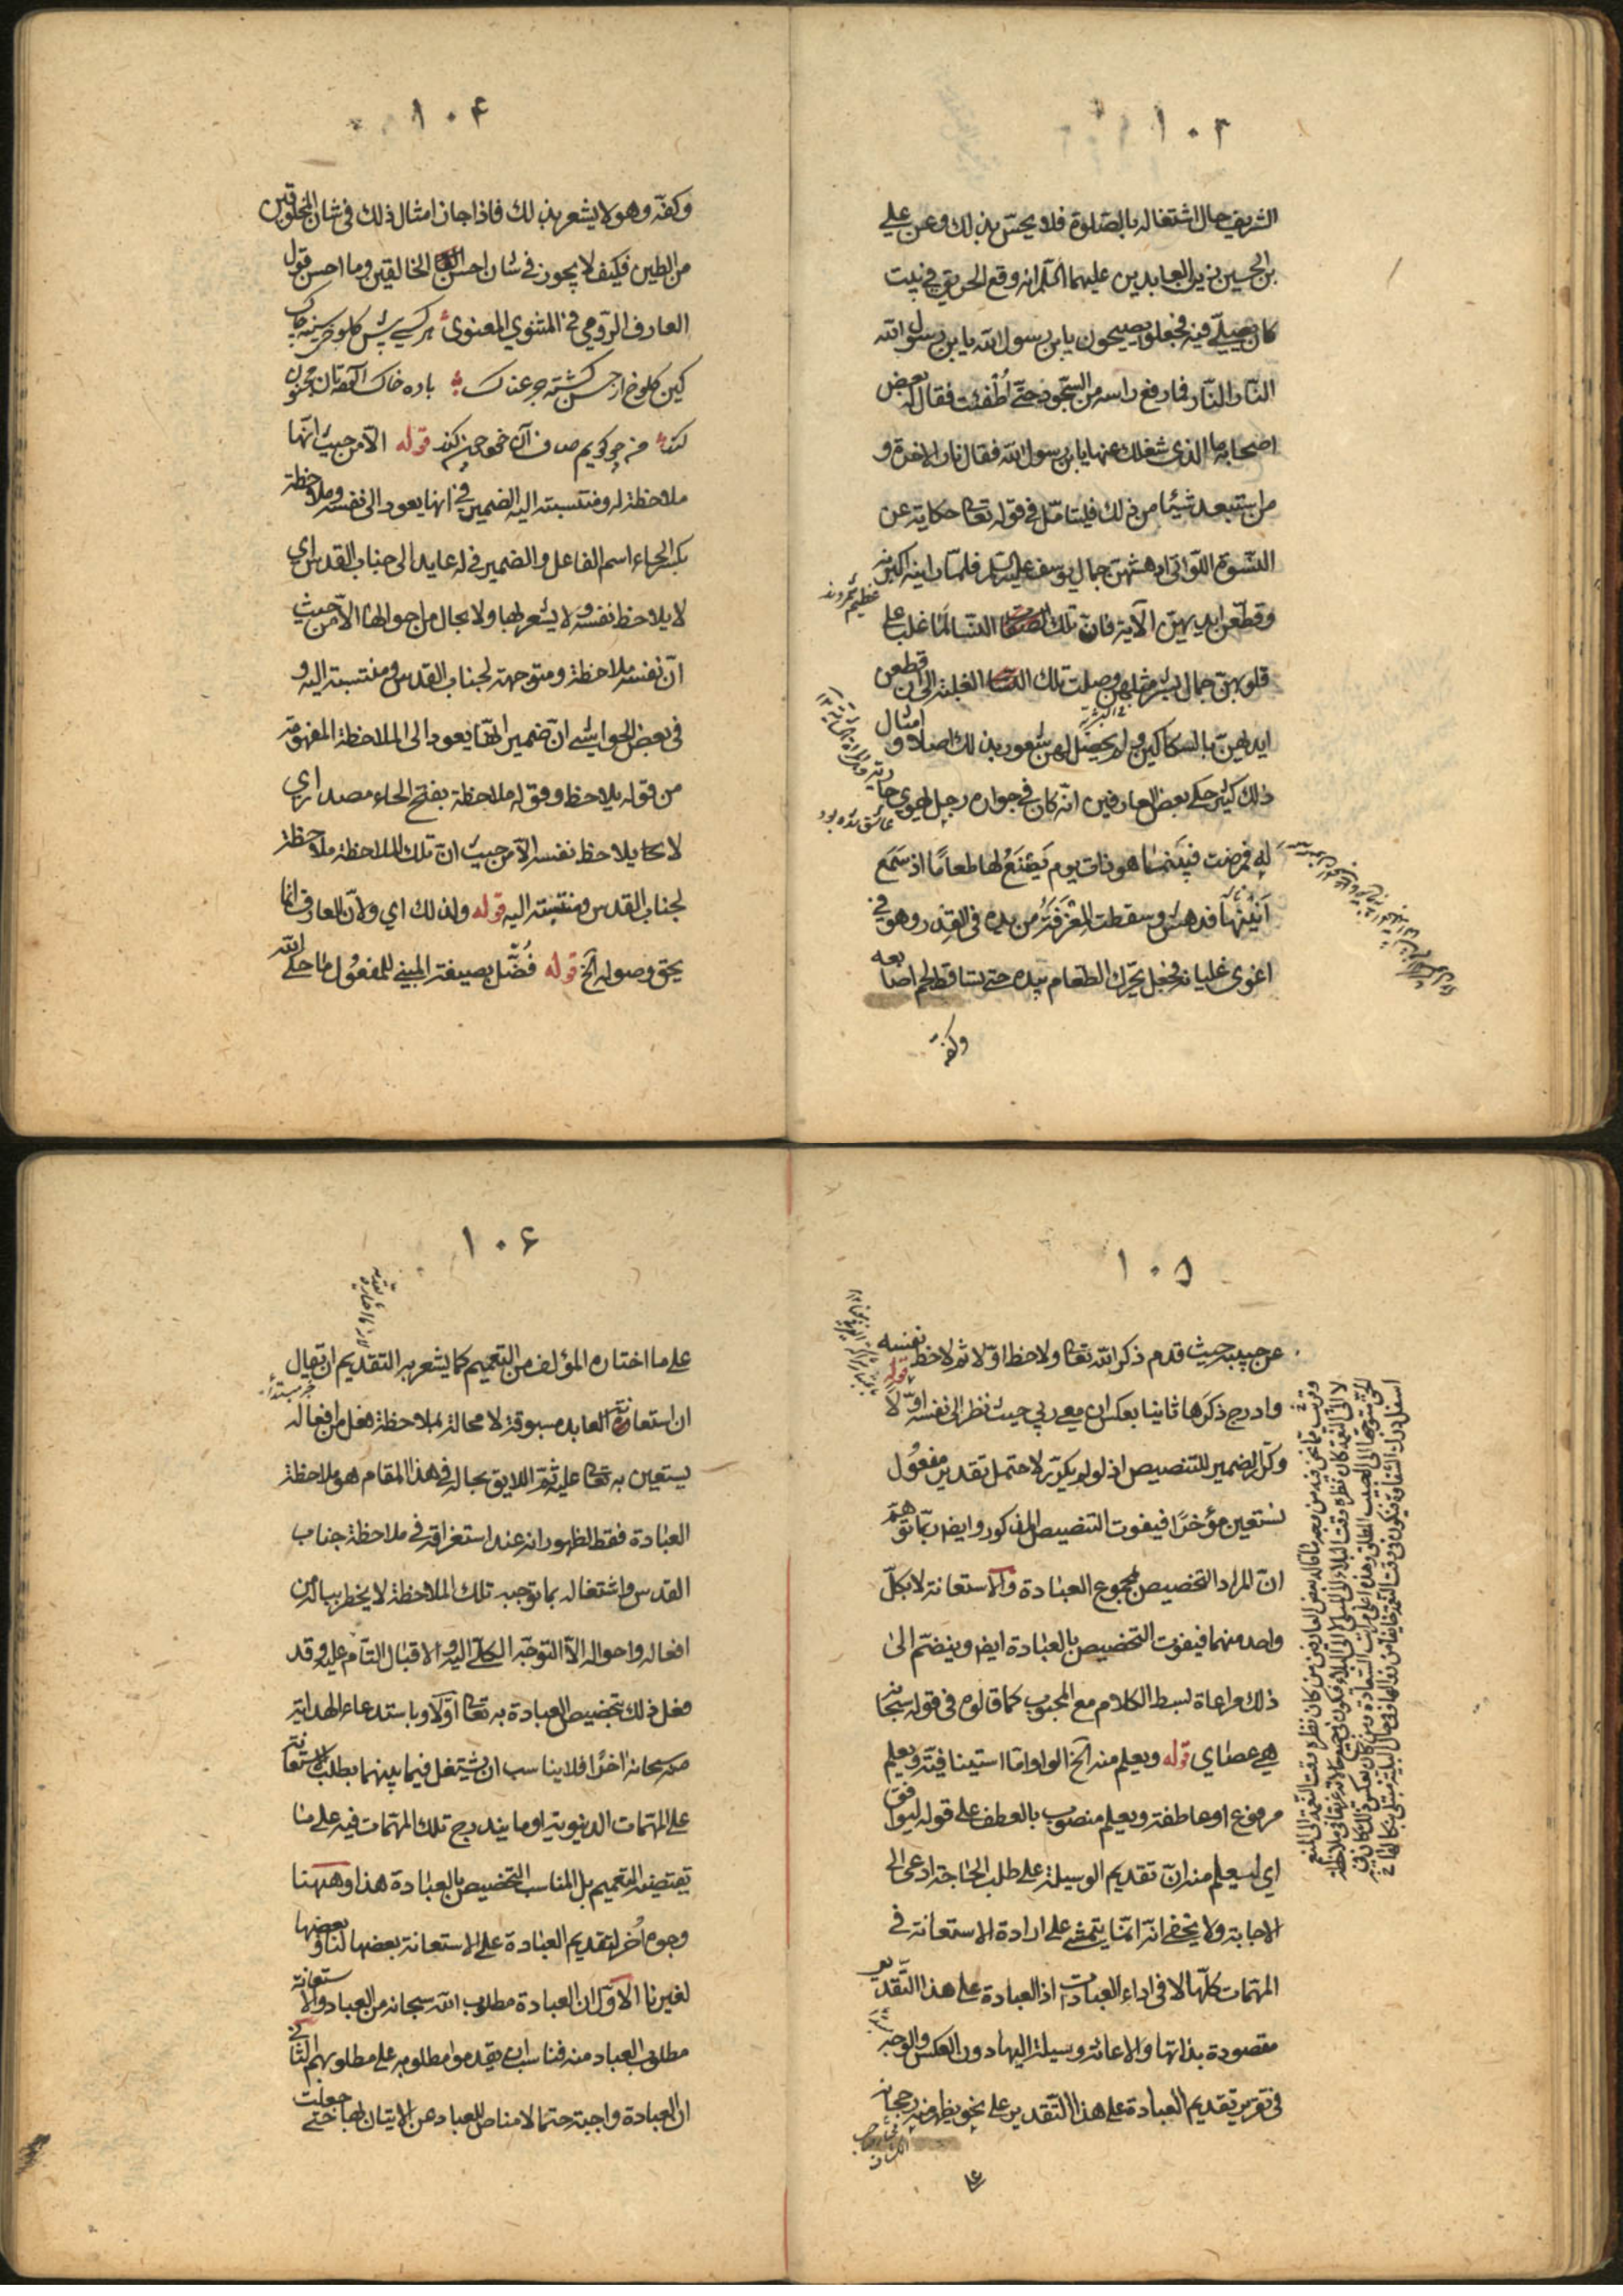 ١٠٣
الشريف حال اشتغاله بالصلوة فلا يحسّ بذلك وعن علي
بن الحسين زين العابدين عليهما السلام انه وقع الحريق في بيت
كان يصلّي فيه فجعلوا يصيحون يابن رسول الله يابن رسول الله
النار النار فما رفع راسه من السجود حتّى اُطفئت فقال له بعض
اصحابه ما الذى شغلك عنها يابن رسول الله فقال نار الاخرة و
من استبعد شيئا من ذلك فليتامّل في قوله تعا حكاية عن
النسوة اللواتى ادهشهن جمال يوسف عليه السلام فلمّا راينه اكبرنه
وقطّعن ايديهن الآية فانّ تلك النسا لمّا غلب على
قلوبهن جمال بشر مثلهن وصلت تلك الغلبة الى ان قطعن
ايديهن بالسكاكين ولم يحصل لهن شعور بذلك اصلا و امثال
ذلك كثير حكى بعض العارفين انّه كان في جواره رجل يهوى جارية
له فمرضت فبينما هو ذات يوم يَصْنَعُ لها طعامًا اذ سَمَع
اَنينها فدهش وسقطت المِغْرَفَةُ من يده في القِدر وهو في
اقوى غليانه فجعل يحرّك الطعام بيده حتى تساقط لحم اصابعه
وكفّه
١٠۴
وكفّه وهو لا يشعر بذلك فاذا جاز امثال ذلك في شان المخلوقين
من الطين فكيف لا يجوز في شان احسن الخالقين وما احسن قول
العارف الرومي في المثنوي المعنوي هر كسي پيش كلوخى سينه چاك
كين كلوخ از حسن گشته جرعه ناك باده خاك آلودتان مجنون
كند من چه گويم صاف آن خود چون كند قوله الّا من حيث انّها
ملاحظة له ومنتسبته اليه الضمير في انها يعود الى نفسه وملاحظة
بكسر الحاء اسم الفاعل والضمير في له عايد الى جناب القدس اي
لا يلاحظ نفسه و لا يشعر بها ولا بحال من احوالها الّا من حيث
انّ نفسه ملاحظة ومتوجهة لجناب القدس ومنتسبة اليه و
في بعض الحواشي انّ ضمير انّها يعود الى الملاحظة المفهومة
من قوله يلاحظ وقوله ملاحظة بفتح الحاء مصدر اي
لا يلاحظ نفسه الّا من حيث انّ تلك الملاحظة ملاحظة
لجناب القدس ومنتسبة اليه قوله ولذلك اي ولانّ العارف انما
يحق وصوله الخ قوله فُضّل بصيغة المبني للمفعُول ما حكى الله
١٠٥
عن حبيبه حيث قدم ذكر الله تعا ولاحظه اوّلا ثم لاحظ نفسه
وادرج ذكرَها ثانيا بعكس ان معي ربي حيث نظر الى نفسه اوّلا قوله
وكرّر الضمير للتنصيص اذ لو لم يكرّر لاحتمل تقدير مفعُول
نستعين مؤخرًا فيفوت التنصيص المذكور وايضا ربّما توهّم
انّ المراد التخصيص بمجموع العبادة والاستعانة لا بكلّ
واحد منهما فيفوت التخصيص بالعبادة ايضا وينضمّ الى
ذلك مراعاة لبسط الكلام مع المحبوب كما قالوه في قوله سبحانه
هي عصاي قوله ويعلم منه الخ الواو امّا استينافيّة ويعلم
مرفوع او عاطفة ويعلم منصوب بالعطف على قوله ليوافق
اي ليعلم منه انّ تقديم الوسيلة على طلب الحاجة ادعى الى
الاجابة ولا يخفى انّه انّما يتمشى على ارادة الاستعانة في
المهمّات كلّها لا في اداء العبادات اذ العبادة على هذا التقدير
مقصودة بذاتها والاعانة وسيلة اليها دون العكس والوجه
في تقرير تقديم العبادة على هذا التقدير على نحو يظهر منه رجحانه
على
١٠۶
على ما اختاره المؤلف من التعميم كما يشعر به التقديم ان يقال
ان استعانة العابد مسبوقة لا محالة بملاحظة فعل من افعاله
يستعين به تعا عليه ثمّ اللايق بحاله في هذا المقام هو ملاحظة
العبادة فقط لظهور انه عند استغراقه في ملاحظة جناب
القدس واشتغاله بما توجبه تلك الملاحظة لا يخطر بباله من
افعاله واحواله الّا التوجّه الكلّي اليه والاقبال التام عليه وقد
فعل ذلك بتخصيص العبادة به تعا اوّلا وباستدعاء الهداية
منه سبحانه اخرًا فلا يناسب ان يشتغل فيما بينهما بطلب الاستعانة
على المهمّات الدنيوية او ما يندرج تلك المهمّات فيه على ما
يقتضيه التعميم بل المناسب التخصيص بالعبادة هذا وههنا
وجوه اُخر لتقديم العبادة على الاستعانة بعضها لنا وبعضها
لغيرنا الاوّل ان العبادة مطلوب الله سبحانه من العباد والاستعانة
مطلوب العباد منه فناسب ان يقدموا مطلوبه على مطلوبهم الثاني
ان العبادة واجبة حتما لا مناص للعباد عن الاتيان بها حتى جعلت